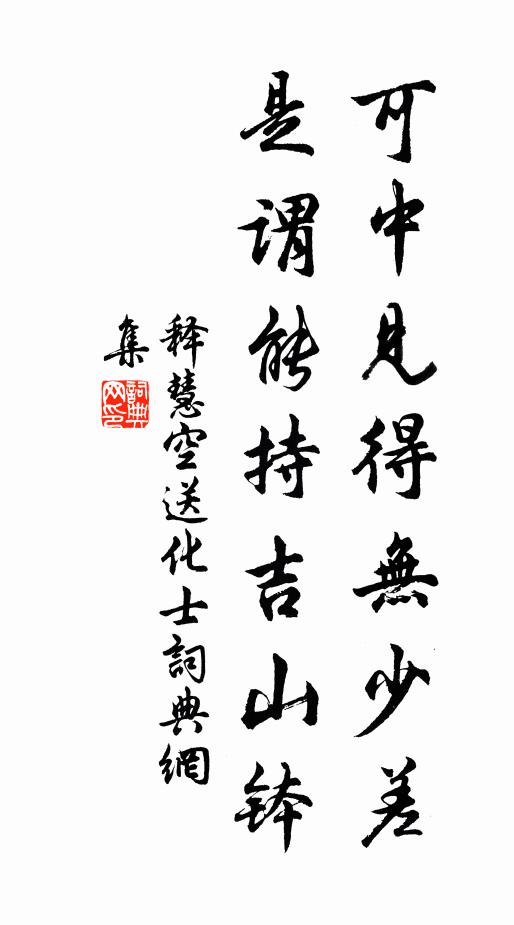 可中見得無少差
是謂能持吉山鉢
釋慧空送化士詞典網
集
詞典
网印